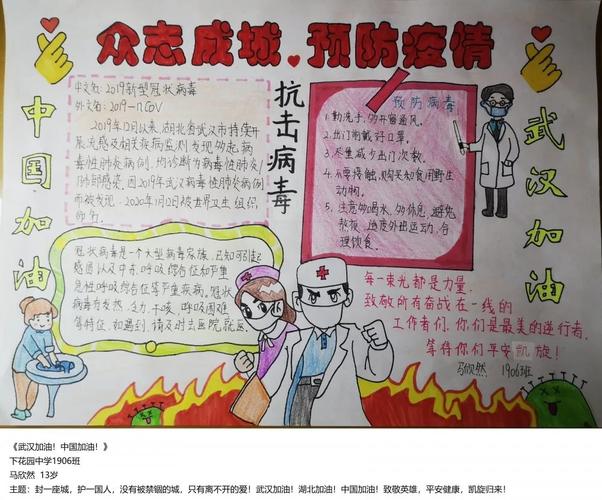 众志成城 预防疫情
中国加油
中文名:2019新型冠状病毒
外文名:2019-nCoV
2019年12月以来,湖北省武汉市持续开
展流感及相关疾病监测,发现多起病
毒性肺炎病例,均诊断为病毒性肺炎/
肺部感染,因2019年武汉病毒性肺炎病例
而被发现,2020年1月12日被世界卫生组织
命名。
抗击病毒
预防病毒
1.勤洗手,多开窗通风。
2.出门前戴好口罩。
3.尽量减少出门次数。
4.不要接触、购买和食用野生
动物。
5.注意多喝水,多休息,避免
熬夜,适度外出运动,合
理饮食。
武汉加油
冠状病毒是一个大型病毒家族,已知可引起
感冒以及中东呼吸综合征和严重
急性呼吸综合征等严重疾病。冠状
病毒为发热、乏力、干咳、呼吸困难
等特征,如遇到,请及时去医院就医。
每一束光都是力量
致敬所有奋战在一线的
工作者们,你们是最美的逆行者,
等待你们平安凯旋!
马欣然 1906班
《武汉加油!中国加油!》
下花园中学1906班
马欣然 13岁
主题:封一座城,护一国人,没有被禁锢的城,只有离不开的爱!武汉加油!湖北加油!中国加油!致敬英雄,平安健康,凯旋归来!